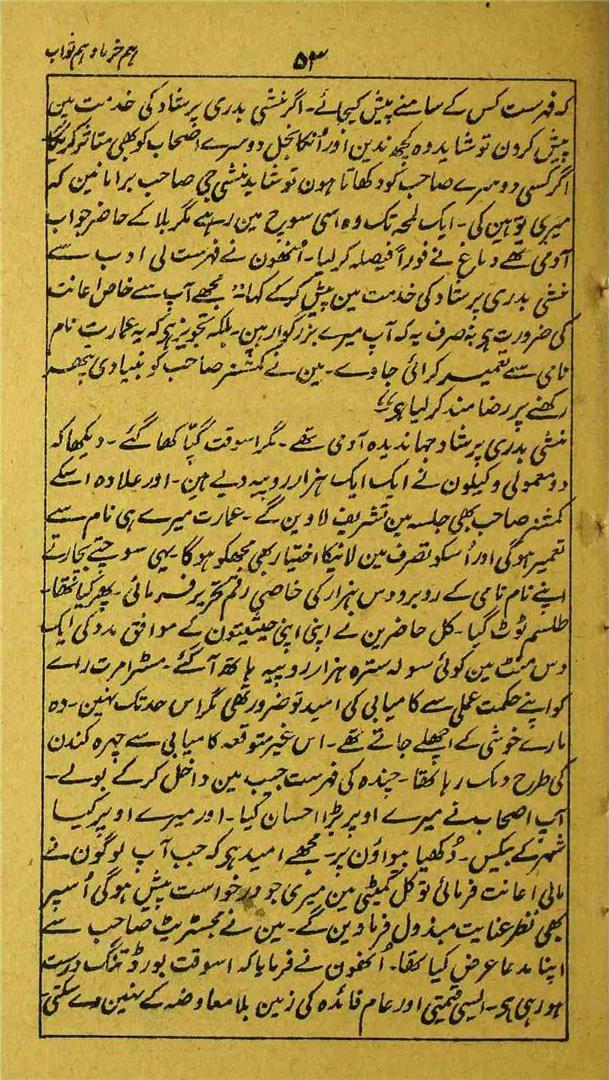 ہم خرما و ہم ثواب
۵۳
کہ فہرست کس کے سامنے پیش کیجائے۔ اگر منشی بدری پرشاد کی خدمت مین
پیش کرون تو شاید وہ کچھ ندین اور اُنکا بخل دوسرے اصحاب کو بھی متاثر کریگا
اگر کسی دوسرے صاحب کو دکھاتا ہون تو شاید منشی جی صاحب برا مانین کہ
میری توہین کی۔ ایک لمحہ تک وہ اسی سوچ مین رہے مگر بلا کے حاضر جواب
آدمی تھے دماغ نے فوراً فیصلہ کر لیا۔ اُنھون نے فہرست لی ادب سے
منشی بدری پرشاد کی خدمت مین پیش کر کے کہا ”مجھے آپ سے خاص اعانت
کی ضرورت ہو نہ صرف یہ کہ آپ میرے بزرگوار ہین۔ بلکہ تجویز ہو کہ یہ عمارت نام
نامی سے تعمیر کرائی جاوے۔ مین نے کمشنر صاحب کو بنیادی پتھر
رکھنے پر رضامند کر لیا ہو“
منشی بدری پرشاد جہاندیدہ آدمی تھے۔ مگر اسوقت گپّا کھا گئے۔ دیکھا کہ
دو معمولی وکیلون نے ایک ایک ہزار روپیہ دیے ہین۔ اور علاوہ اسکے
کمشنر صاحب بھی جلسہ مین تشریف لاوین گے۔ عمارت میرے ہی نام سے
تعمیر ہوگی اور اُسکو تصرف مین لانیکا اختیار بھی مجھکو ہوگا۔ یہی سوچتے بچارتے
اپنے نام نامی کے روبرو دس ہزار کی خاصی رقم تحریر فرمائی۔ پھر کیا تھا۔
طلسم ٹوٹ گیا۔ کل حاضرین نے اپنی اپنی حیثیتون کے موافق مدد کی ایک
دس منٹ مین کوئی سولہ سترہ ہزار روپیہ ہاتھ آ گئے۔ مسٹر امرت راے
کو اپنے حکمت عملی سے کامیابی کی امید تو ضرور تھی مگر اس حد تک نہین۔ وہ
مارے خوشی کے اچھلے جاتے تھے۔ اس غیر متوقعہ کامیابی سے چہرہ کندن
کی طرح دمک رہا تھا۔ چندہ کی فہرست جیب مین داخل کر کے بولے۔
آپ اصحاب نے میرے اوپر بڑا احسان کیا۔ اور میرے اوپر کیا
شہر کے بیکس۔ دُکھیا بیواؤن پر۔ مجھے امید ہو کہ جب آپ لوگون نے
مالی اعانت فرمائی تو کل کمیٹی مین میری جو درخواست پیش ہوگی اُسپر
بھی نظر عنایت مبذول فرماوین گے۔ مین نے مجسٹریٹ صاحب سے
اپنا مدعا عرض کیا تھا۔ اُنھون نے فرمایا کہ اسوقت بورڈ تنگ دست
ہو رہی ہو۔ ایسی قیمتی اور عام فائدہ کی زمین بلا معاوضہ کے نہین دے سکتی